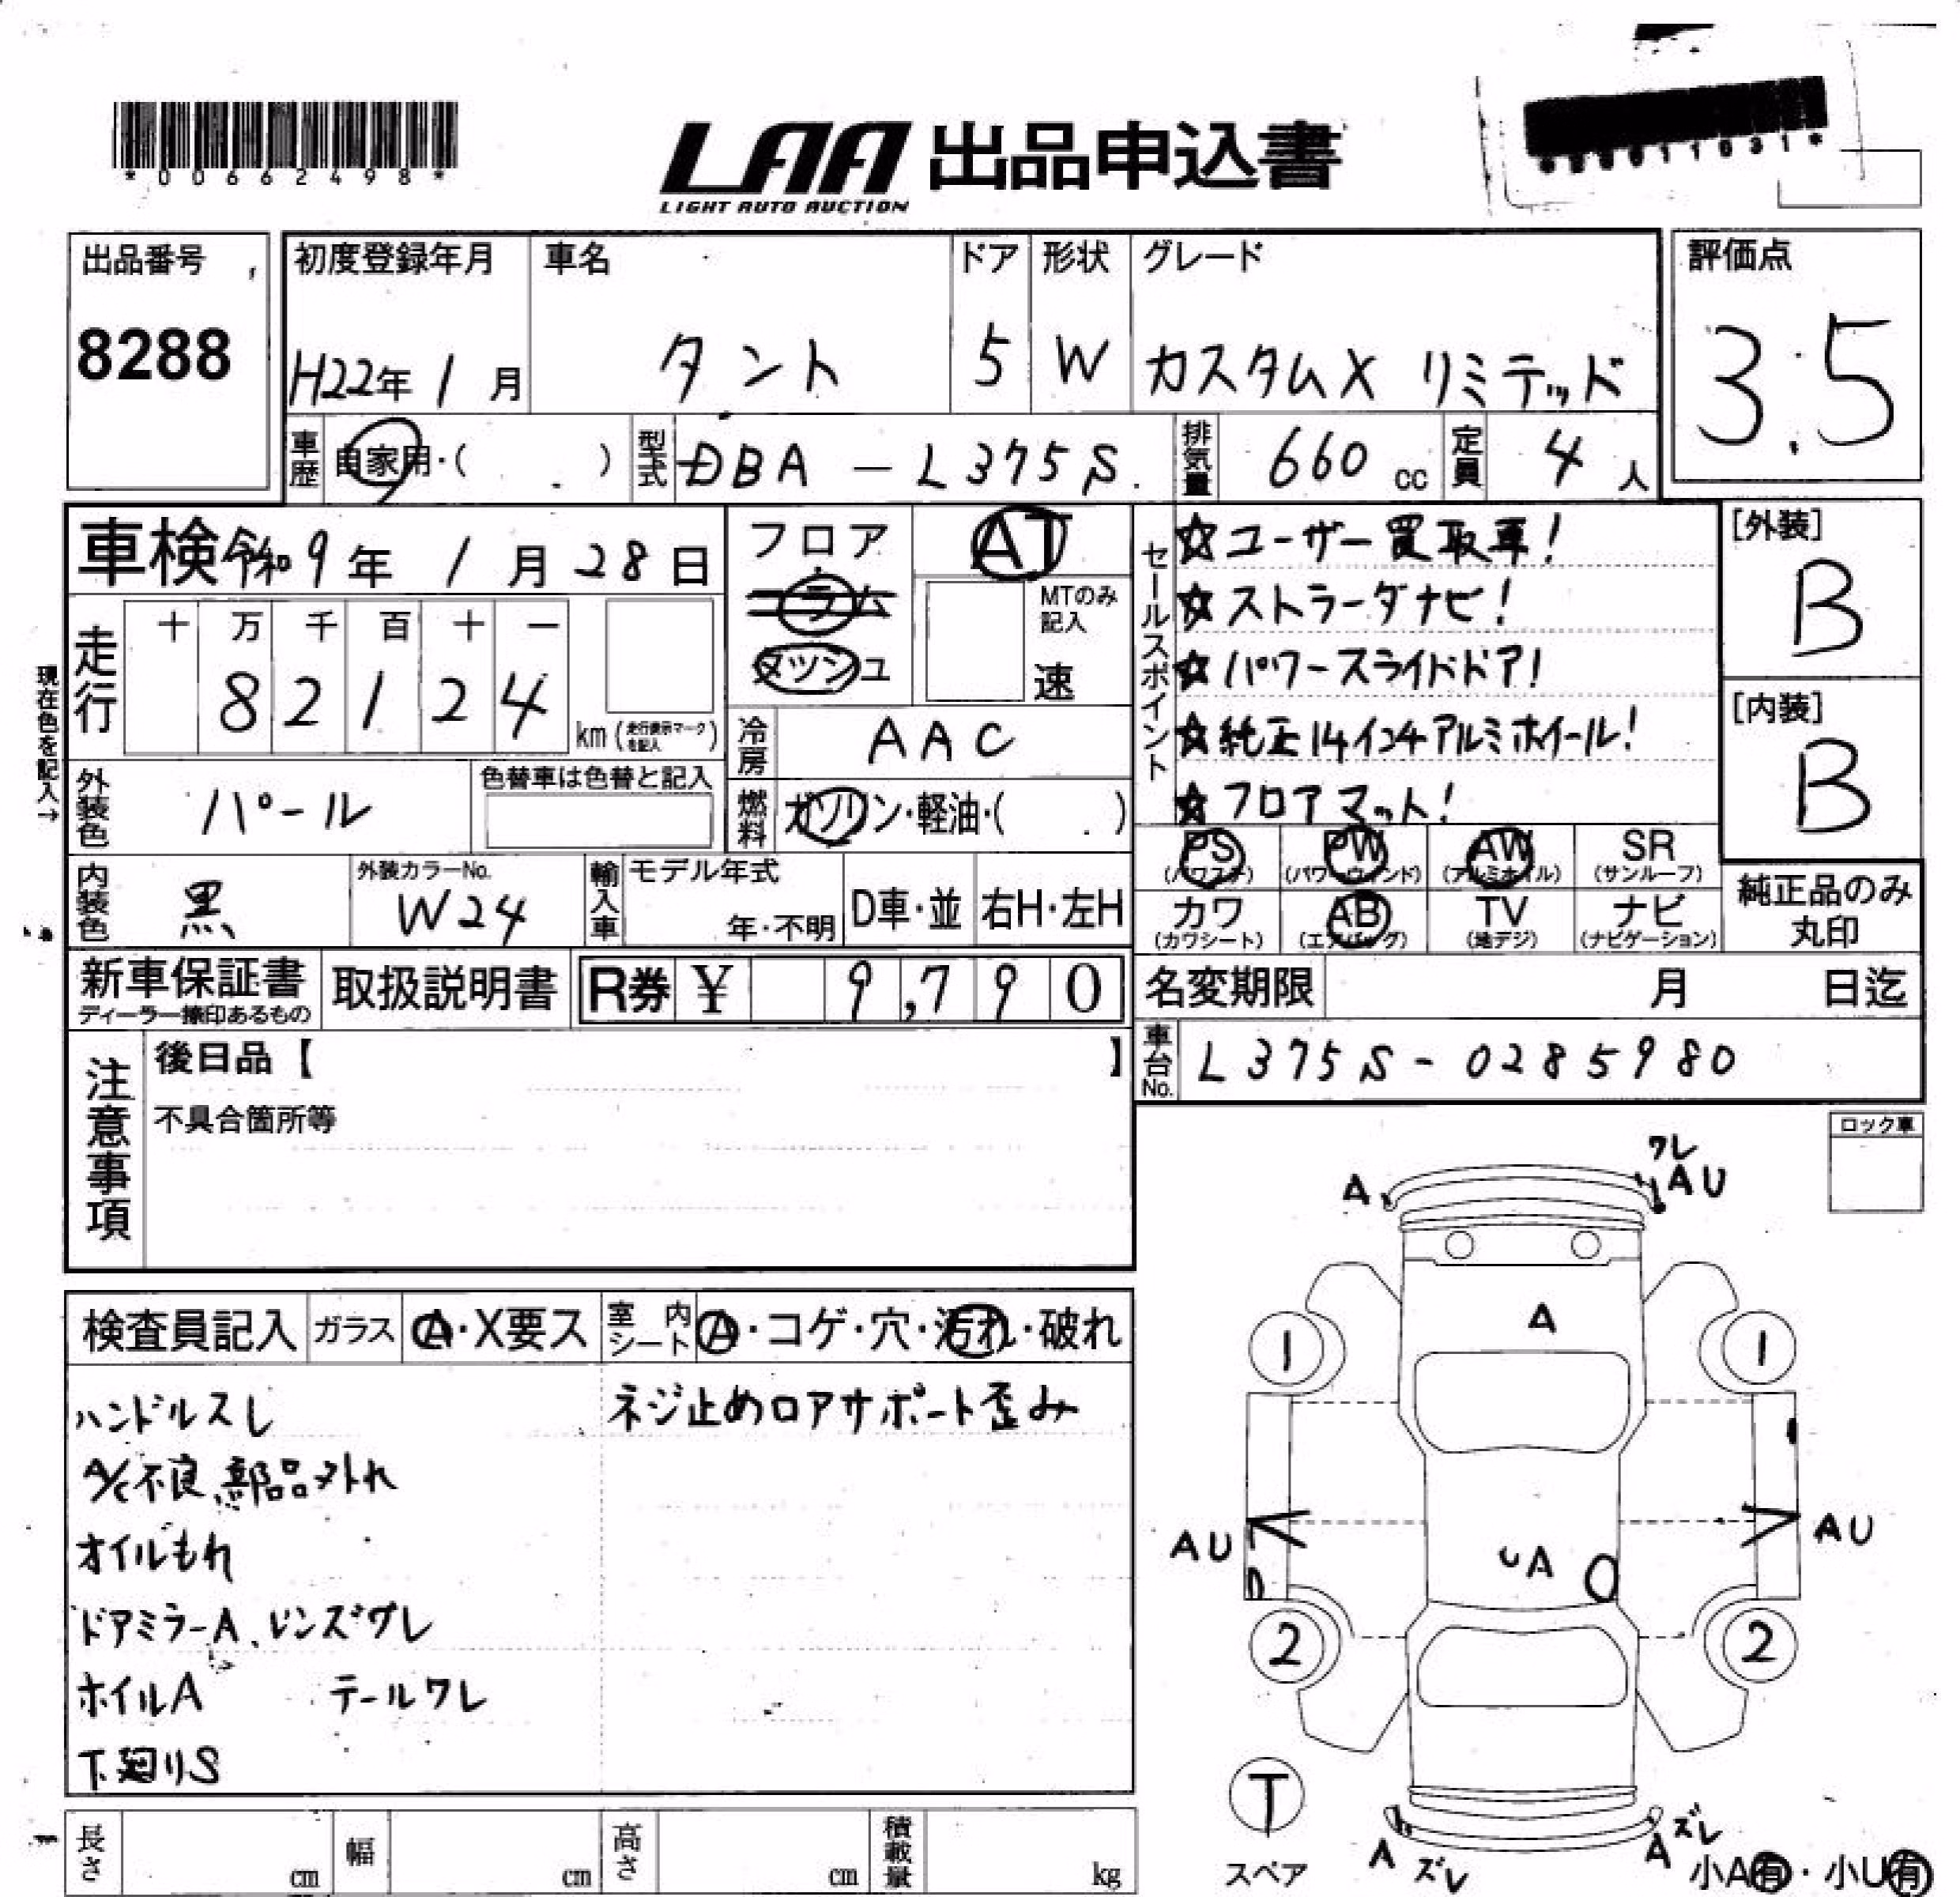 *00662498*
LAA 出品申込書
LIGHT AUTO AUCTION
出品番号
8288
初度登録年月
H22年 1月
車名
タント
ドア
5
形状
W
グレード
カスタムX リミテッド
評価点
3.5
車歴 自家用・( )
型式 DBA-L375S
排気量 660 cc
定員 4人
車検 令和9年 1月 28日
フロア
コラム
メツシユ
AT
MTのみ記入
速
走行
十 万 千 百 十 一
8 2 1 2 4
km(走行表示マークを記入)
現在色を記入→
冷房 AAC
燃料 ガソリン・軽油・( )
外装色 パール
色替車は色替と記入
内装色 黒
外装カラーNo.
W24
輸入車
モデル年式
年・不明
D車・並
右H・左H
セールスポイント
☆ユーザー買取車!
☆ストラーダナビ!
☆パワースライドドア!
☆純正14インチアルミホイール!
☆フロアマット!
[外装]
B
[内装]
B
PS
(パワステ)
PW
(パワーウィンド)
AW
(アルミホイル)
SR
(サンルーフ)
カワ
(カワシート)
AB
(エアバッグ)
TV
(地デジ)
ナビ
(ナビゲーション)
純正品のみ
丸印
新車保証書
ディーラー捺印あるもの
取扱説明書
R券 ¥ 9,790
名変期限 月 日迄
車台No. L375S-0285980
注意事項
後日品【 】
不具合箇所等
ロック車
検査員記入
ガラス
A・X要ス
室内シート
A・コゲ・穴・汚れ・破れ
ハンドルスレ
A/C不良、部品外れ
オイルもれ
ドアミラーA、レンズワレ
ホイルA テールワレ
下廻りS
ネジ止めロアサポート歪み
ワレ
A AU
A
1 1
AU AU
A
2 2
T
スペア
A ズレ
A ズレ
小A有・小U有
長さ cm
幅 cm
高さ cm
積載量 kg